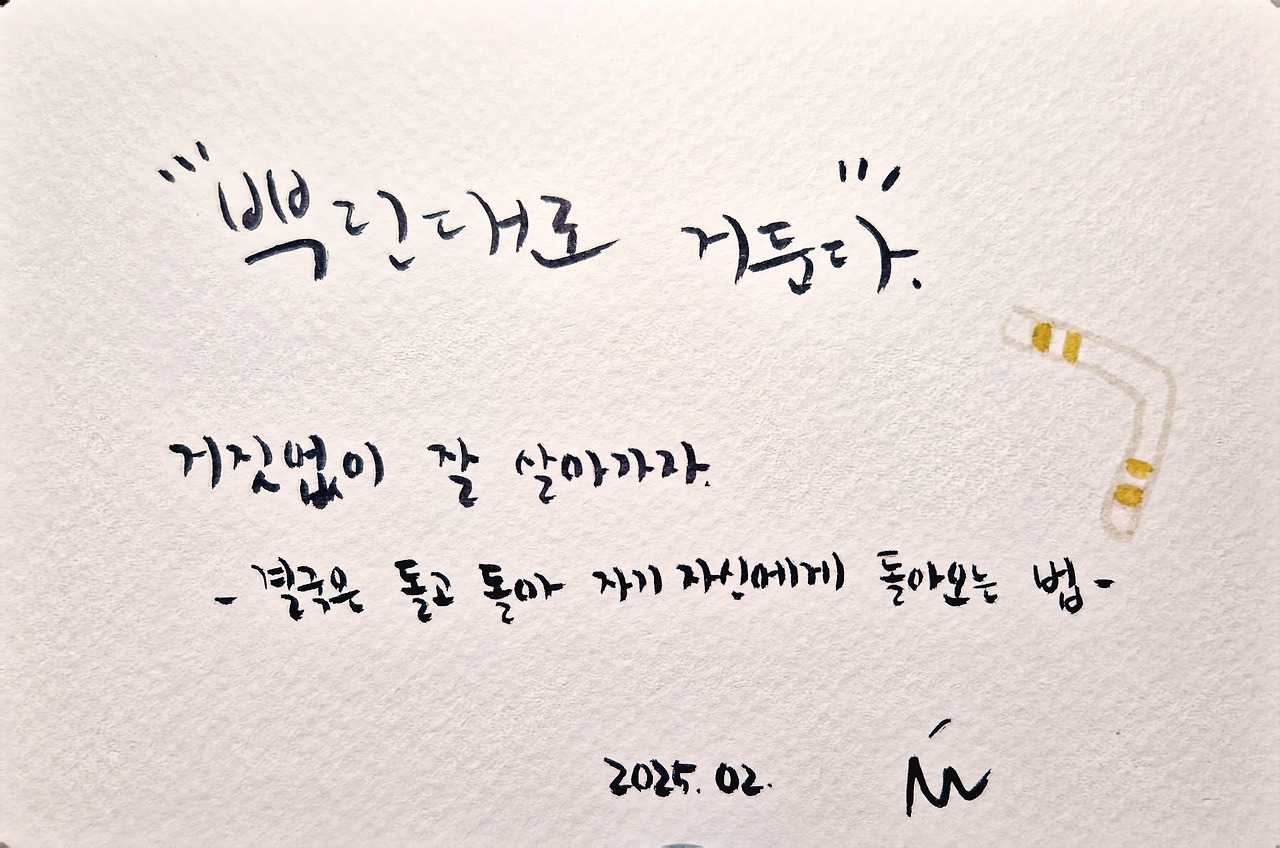 "'뿌린대로 거둔다."'
거짓없이 잘 살아가자.
- 결국은 돌고 돌아 자기 자신에게 돌아오는 법 -
2025. 02.